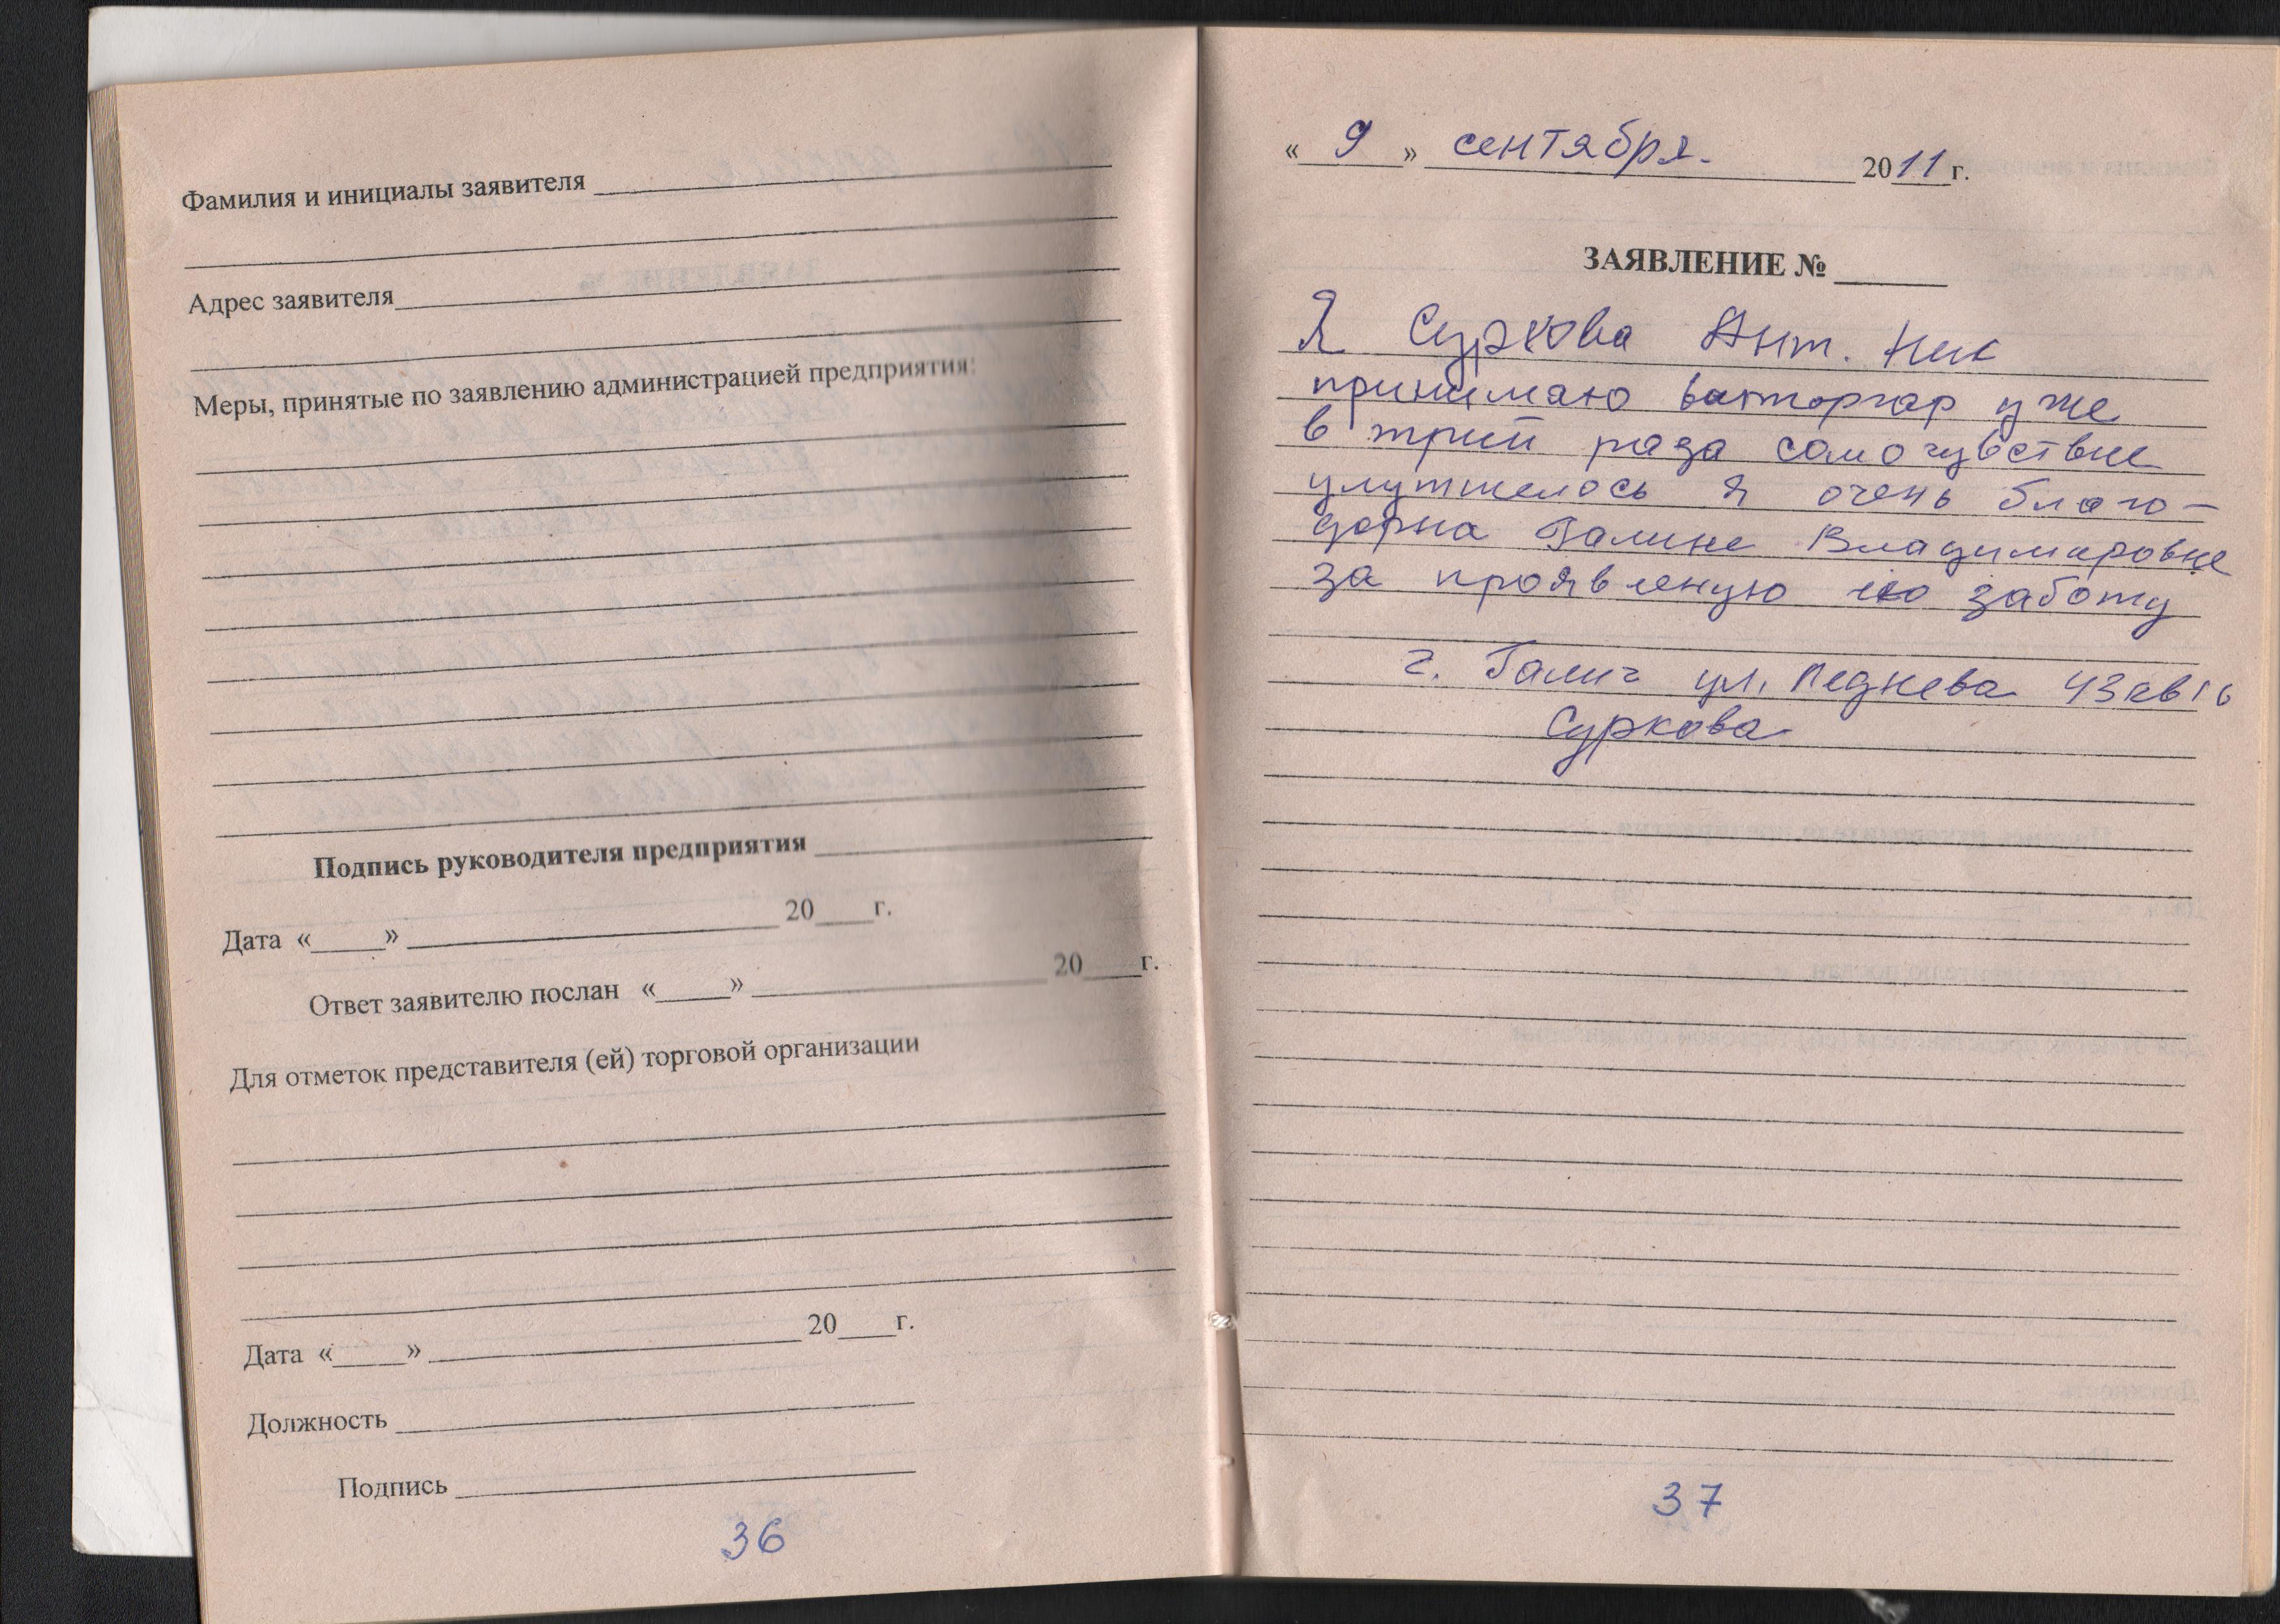 Фамилия и инициалы заявителя
Адрес заявителя
Меры, принятые по заявлению администрацией предприятия:
Подпись руководителя предприятия
Дата «    »    20    г.
Ответ заявителю послан «    »    20    г.
Для отметок представителя (ей) торговой организации
Дата «    »    20    г.
Должность
Подпись
36
« 9 » сентября. 2011 г.
ЗАЯВЛЕНИЕ №
Я Суркова Ант. Ник
принимаю уже
в трий раза самочувствие
улутшелось я очень благо-
дарна Галине Владимировне
за проявленую ею заботу
г. Галич ул. Леднева 43 кв 16
Суркова
37